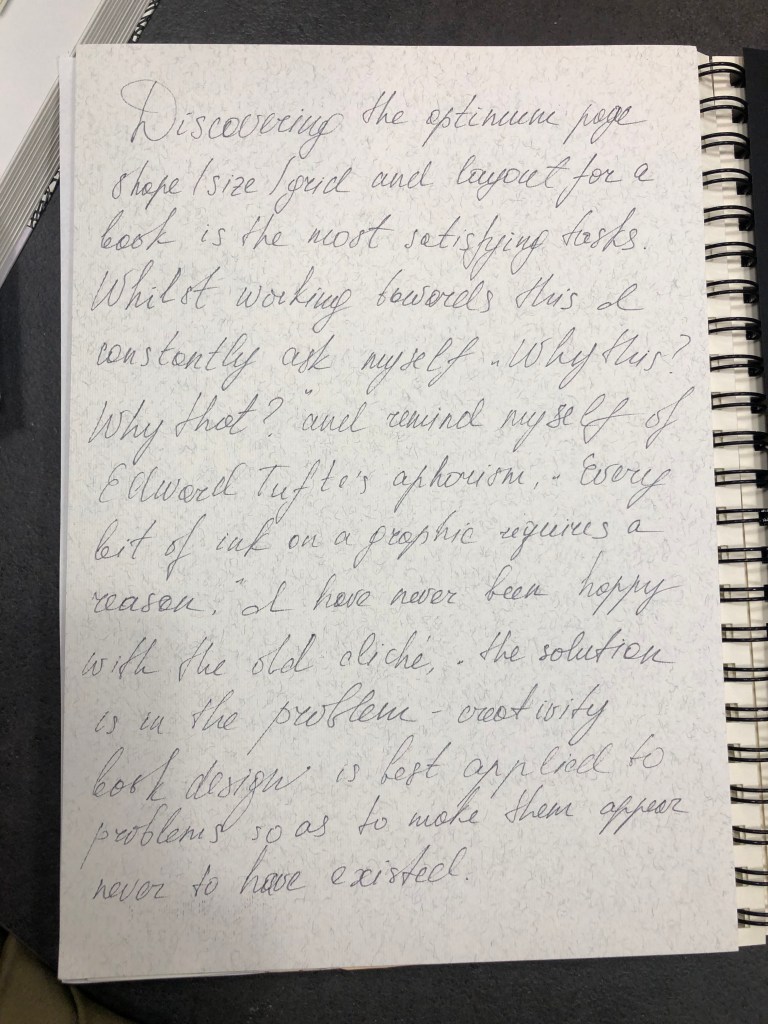 Discovering the optimum page
shape/size/grid and layout for a
book is the most satisfying tasks.
Whilst working towards this I
constantly ask myself „Why this?
Why that?" and remind myself of
Edward Tufte's aphorism, „Every
bit of ink on a graphic requires a
reason." I have never been happy
with the old cliché, „the solution
is in the problem - creativity
book design is best applied to
problems so as to make them appear
never to have existed.